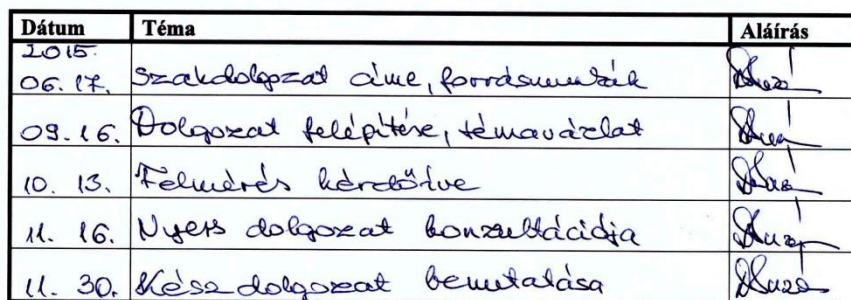 Dátum Téma Aláírás
2015.
06. 17. Szakdolgozat címe, forrásmunkák
09. 16. Dolgozat felépítése, témavázlat
10. 13. Felmérés kérdőíve
11. 16. Nyers dolgozat konzultációja
11. 30. Kész dolgozat bemutatása